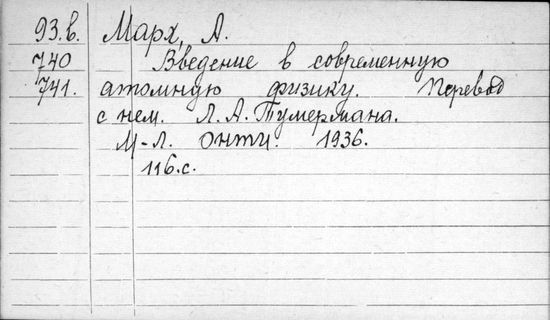 93.в. Марх, А.
740 Введение в современную
741. атомную физику. Перевод
с нем. Л. А. Тумермана.
М-Л. ОНТИ. 1936.
116.с.